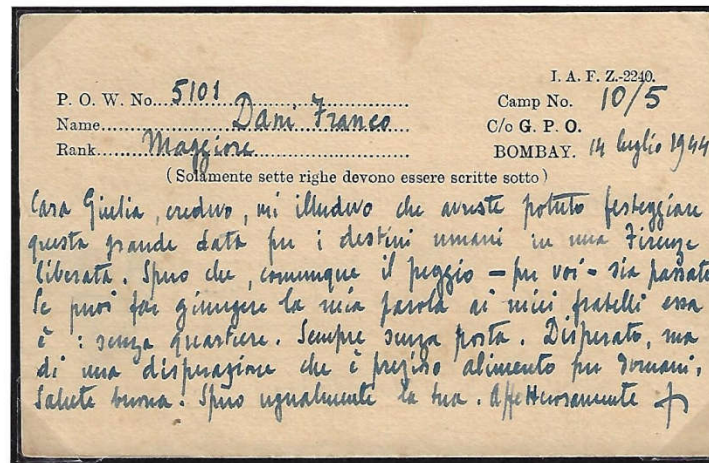 I. A. F. Z.-2240.
P. O. W. No. 5101 Camp No. 10/5
Name Dani Franco C/o G. P. O.
Rank Maggiore BOMBAY. 14 luglio 1944
(Solamente sette righe devono essere scritte sotto)
Cara Giulia, credevo, mi illudevo che avreste potuto festeggiare
questa grande data per i destini umani in una Firenze
liberata. Spero che, comunque il peggio – per voi – sia passato
Se puoi far giungere la mia parola ai miei fratelli essa
è : senza quartiere. Sempre senza posta. Disperato, ma
di una disperazione che è prezioso alimento per domani.
Salute buona. Spero ugualmente la tua. Affettuosamente